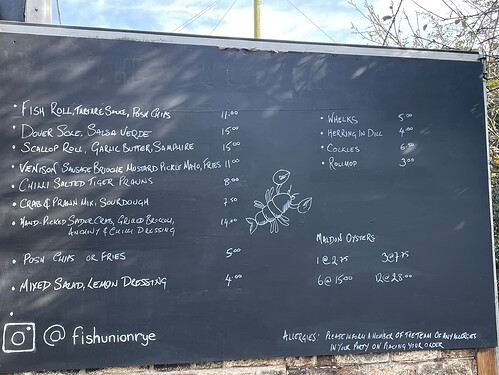 • Fish Roll, Tartare Sauce, Posh Chips 11.00
• Dover Sole, Salsa Verde 15⁰⁰
• Scallop Roll, Garlic Butter, Samphire 15⁰⁰
• Venison Sausage Brioche Mustard Pickle Mayo, Fries 11⁰⁰
• Chilli Salted Tiger Prawns 8.00
• Crab & Prawn Mix, Sourdough 7.50
• Hand-Picked Spider Crab, Grilled Broccoli, 14.00
Anchovy & Chilli Dressing
• Posh Chips or Fries 5⁰⁰
• Mixed Salad, Lemon Dressing 4.00
•
@ fishunionrye
• Whelks 5⁰⁰
• Herring in Dill 4.00
• Cockles 6.50
• Rollmop 3⁰⁰
Maldon Oysters
1 @ 2.75 3 @ 7.75
6 @ 15.00 12 @ 28.00
Allergies: Please inform a member of the team of any allergies
in your party on placing your order